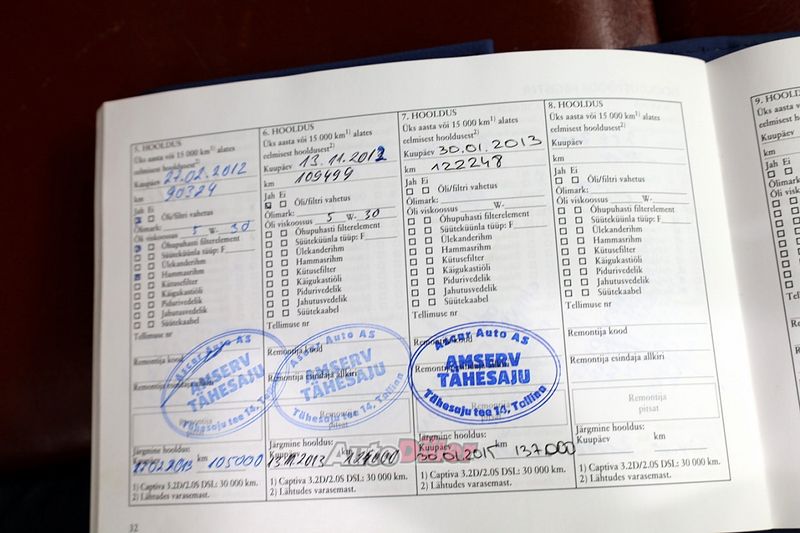 5. HOOLDUS
Üks aasta või 15 000 km1) alates
eelmisest hooldusest2)
Kuupäev 27.02.2012
km 90324
Jah Ei
Õli/filtri vahetus
Õlimark:
Õli viskoossus 5 W- 30
Õhupuhasti filterelement
Süüteküünla tüüp: F
Ülekanderihm
Hammasrihm
Kütusefilter
Käigukastiõli
Pidurivedelik
Jahutusvedelik
Süütekaabel
Tellimuse nr
Remontija kood
Remontija esindaja allkiri
Ascar Auto AS
AMSERV
TÄHESAJU
Tähesaju tee 14, Tallinn
Remontija
pitsat
Järgmine hooldus:
Kuupäev km
105000
1) Captiva 3.2D/2.0S DSL: 30 000 km.
2) Lähtudes varasemast.
32
6. HOOLDUS
Üks aasta või 15 000 km1) alates
eelmisest hooldusest2)
Kuupäev 13.11.2012
km 109499
Jah Ei
Õli/filtri vahetus
Õlimark:
Õli viskoossus 5 W- 30
Õhupuhasti filterelement
Süüteküünla tüüp: F
Ülekanderihm
Hammasrihm
Kütusefilter
Käigukastiõli
Pidurivedelik
Jahutusvedelik
Süütekaabel
Tellimuse nr
Remontija kood
Remontija esindaja allkiri
Ascar Auto AS
AMSERV
TÄHESAJU
Tähesaju tee 14, Tallinn
Remontija
pitsat
Järgmine hooldus:
Kuupäev km
13.11.2013
1) Captiva 3.2D/2.0S DSL: 30 000 km.
2) Lähtudes varasemast.
7. HOOLDUS
Üks aasta või 15 000 km1) alates
eelmisest hooldusest2)
Kuupäev 30.01.2013
km 122248
Jah Ei
Õli/filtri vahetus
Õlimark:
Õli viskoossus W-
Õhupuhasti filterelement
Süüteküünla tüüp: F
Ülekanderihm
Hammasrihm
Kütusefilter
Käigukastiõli
Pidurivedelik
Jahutusvedelik
Süütekaabel
Tellimuse nr
Remontija kood
Ascar Auto AS
AMSERV
TÄHESAJU
Tähesaju tee 14, Tallinn
Järgmine hooldus:
Kuupäev km
30.01.2015 137000
1) Captiva 3.2D/2.0S DSL: 30 000 km.
2) Lähtudes varasemast.
8. HOOLDUS
Üks aasta või 15 000 km1) alates
eelmisest hooldusest2)
Kuupäev
km
Jah Ei
Õli/filtri vahetus
Õlimark:
Õli viskoossus W-
Õhupuhasti filterelement
Süüteküünla tüüp: F
Ülekanderihm
Hammasrihm
Kütusefilter
Käigukastiõli
Pidurivedelik
Jahutusvedelik
Süütekaabel
Tellimuse nr
Remontija kood
Remontija esindaja allkiri
Remontija
pitsat
Järgmine hooldus:
Kuupäev km
1) Captiva 3.2D/2.0S DSL: 30 000 km.
2) Lähtudes varasemast.
9. HOOLDUS
Üks aasta
eelmisest
Kuupäev
km
Jah Ei
AutoDiiler